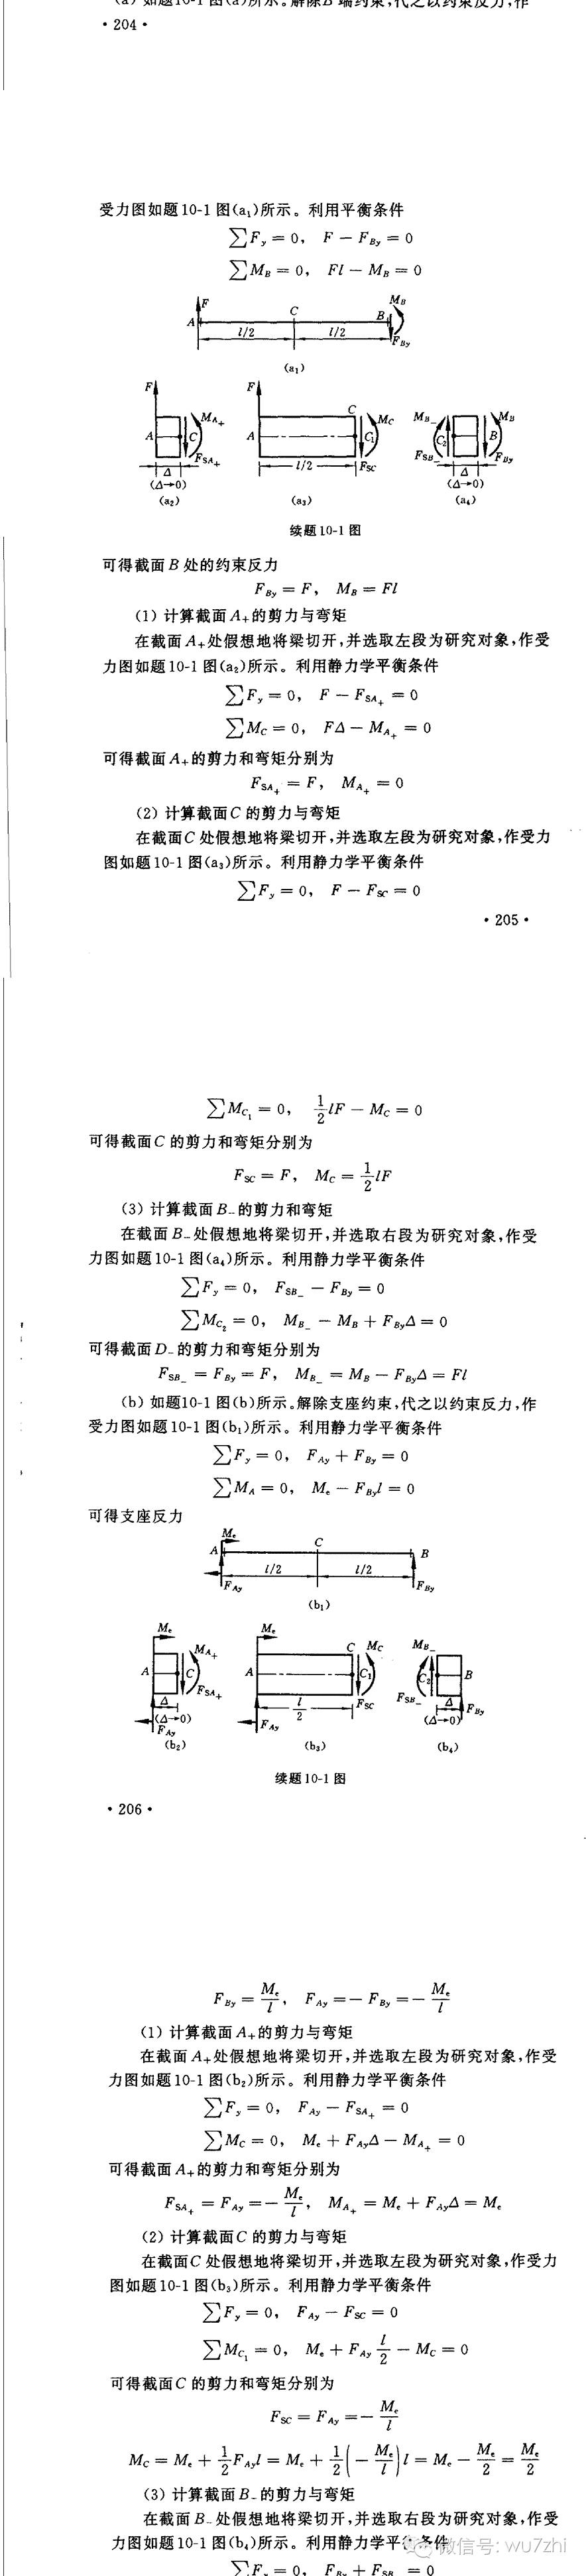 (a) 如题10-1 图(a)所示。解除B 端约束,代之以约束反力,作
• 204 •
受力图如题10-1 图(a₁)所示。利用平衡条件
∑F_y = 0, F − F_By = 0
∑M_B = 0, Fl − M_B = 0
F M_B
A C B
l/2 l/2 F_By
(a₁)
F F
M_A+ C M_C M_B_ M_B
A C A C₁ C₂ B
F_SA+ l/2 F_SC F_SB_ F_By
Δ Δ
(Δ→0) (Δ→0)
(a₂) (a₃) (a₄)
续题10-1 图
可得截面B 处的约束反力
F_By = F, M_B = Fl
(1) 计算截面A+的剪力与弯矩
在截面A+处假想地将梁切开,并选取左段为研究对象,作受
力图如题10-1 图(a₂)所示。利用静力学平衡条件
∑F_y = 0, F − F_SA+ = 0
∑M_C = 0, FΔ − M_A+ = 0
可得截面A+的剪力和弯矩分别为
F_SA+ = F, M_A+ = 0
(2) 计算截面C 的剪力与弯矩
在截面C 处假想地将梁切开,并选取左段为研究对象,作受力
图如题10-1 图(a₃)所示。利用静力学平衡条件
∑F_y = 0, F − F_SC = 0
• 205 •
∑M_C₁ = 0, 1/2 lF − M_C = 0
可得截面C 的剪力和弯矩分别为
F_SC = F, M_C = 1/2 lF
(3) 计算截面B_的剪力和弯矩
在截面B_处假想地将梁切开,并选取右段为研究对象,作受
力图如题10-1 图(a₄)所示。利用静力学平衡条件
∑F_y = 0, F_SB_ − F_By = 0
∑M_C₂ = 0, M_B_ − M_B + F_ByΔ = 0
可得截面D_的剪力和弯矩分别为
F_SB_ = F_By = F, M_B_ = M_B − F_ByΔ = Fl
(b) 如题10-1 图(b)所示。解除支座约束,代之以约束反力,作
受力图如题10-1 图(b₁)所示。利用静力学平衡条件
∑F_y = 0, F_Ay + F_By = 0
∑M_A = 0, M_e − F_Byl = 0
可得支座反力
M_e
A C B
l/2 l/2
F_Ay F_By
(b₁)
M_e M_e
M_A+ C M_C M_B_
A C A C₁ C₂ B
F_SA+ F_SC F_SB_
Δ l/2 Δ F_By
(Δ→0) F_Ay (Δ→0)
F_Ay
(b₂) (b₃) (b₄)
续题10-1 图
• 206 •
F_By = M_e/l, F_Ay = − F_By = − M_e/l
(1) 计算截面A+的剪力与弯矩
在截面A+处假想地将梁切开,并选取左段为研究对象,作受
力图如题10-1 图(b₂)所示。利用静力学平衡条件
∑F_y = 0, F_Ay − F_SA+ = 0
∑M_C = 0, M_e + F_AyΔ − M_A+ = 0
可得截面A+的剪力和弯矩分别为
F_SA+ = F_Ay = − M_e/l, M_A+ = M_e + F_AyΔ = M_e
(2) 计算截面C 的剪力与弯矩
在截面C 处假想地将梁切开,并选取左段为研究对象,作受力
图如题10-1 图(b₃)所示。利用静力学平衡条件
∑F_y = 0, F_Ay − F_SC = 0
∑M_C₁ = 0, M_e + F_Ay l/2 − M_C = 0
可得截面C 的剪力和弯矩分别为
F_SC = F_Ay = − M_e/l
M_C = M_e + 1/2 F_Ayl = M_e + 1/2 (− M_e/l) l = M_e − M_e/2 = M_e/2
(3) 计算截面B_的剪力与弯矩
在截面B_处假想地将梁切开,并选取右段为研究对象,作受
力图如题10-1 图(b₄)所示。利用静力学平衡条件
微信号: wu7zhi
∑F_y = 0, F_By + F_SB_ = 0